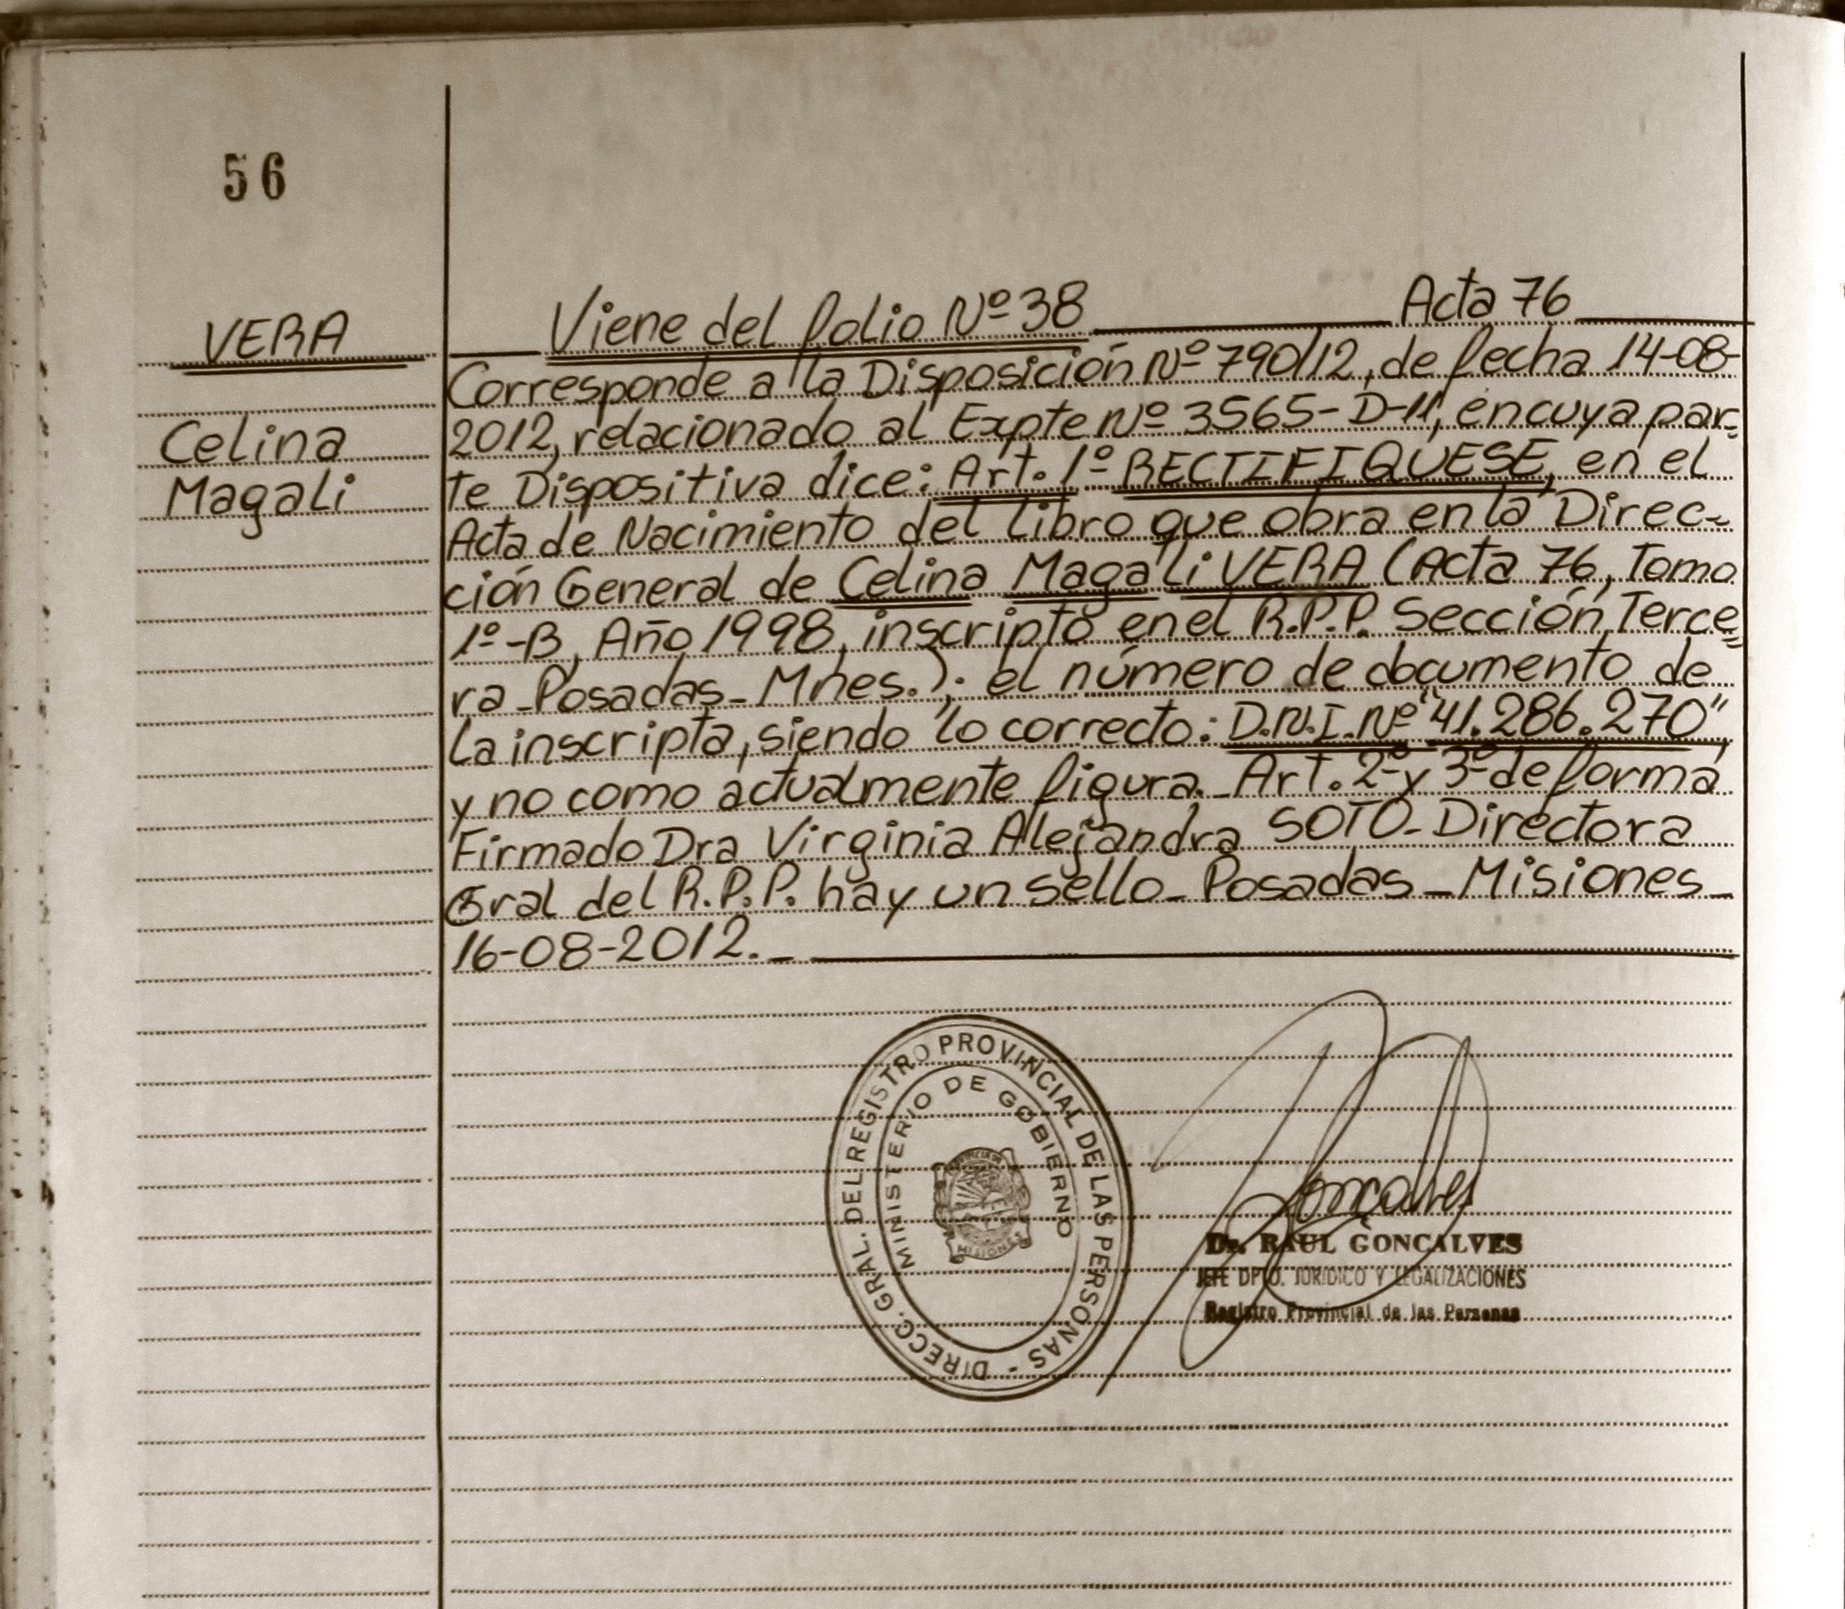 56
VERA
Celina
Magali
Viene del folio Nº 38 Acta 76
Corresponde a la Disposición Nº 790/12, de fecha 14-08-
2012, relacionado al Expte Nº 3565-D-11, en cuya par-
te Dispositiva dice: Art. 1º RECTIFIQUESE, en el
Acta de Nacimiento del libro que obra en la Direc-
ción General de Celina Magali VERA (Acta 76, Tomo
1º-B, Año 1998, inscripto en el R.P.P. Sección Terce=
ra-Posadas-Mnes.); el número de documento de
la inscripta, siendo lo correcto: D.N.I. Nº "41.286.270",
y no como actualmente figura. Art. 2º y 3º de forma
Firmado Dra Virginia Alejandra SOTO-Directora
Gral del R.P.P. hay un sello-Posadas-Misiones-
16-08-2012.-
DIRECC. GRAL. DEL REGISTRO PROVINCIAL DE LAS PERSONAS -
MINISTERIO DE GOBIERNO
PROVINCIA DE
MISIONES
Goncalves
Dr. RAUL GONCALVES
JEFE DPTO. JURIDICO Y LEGALIZACIONES
Registro Provincial de las Personas